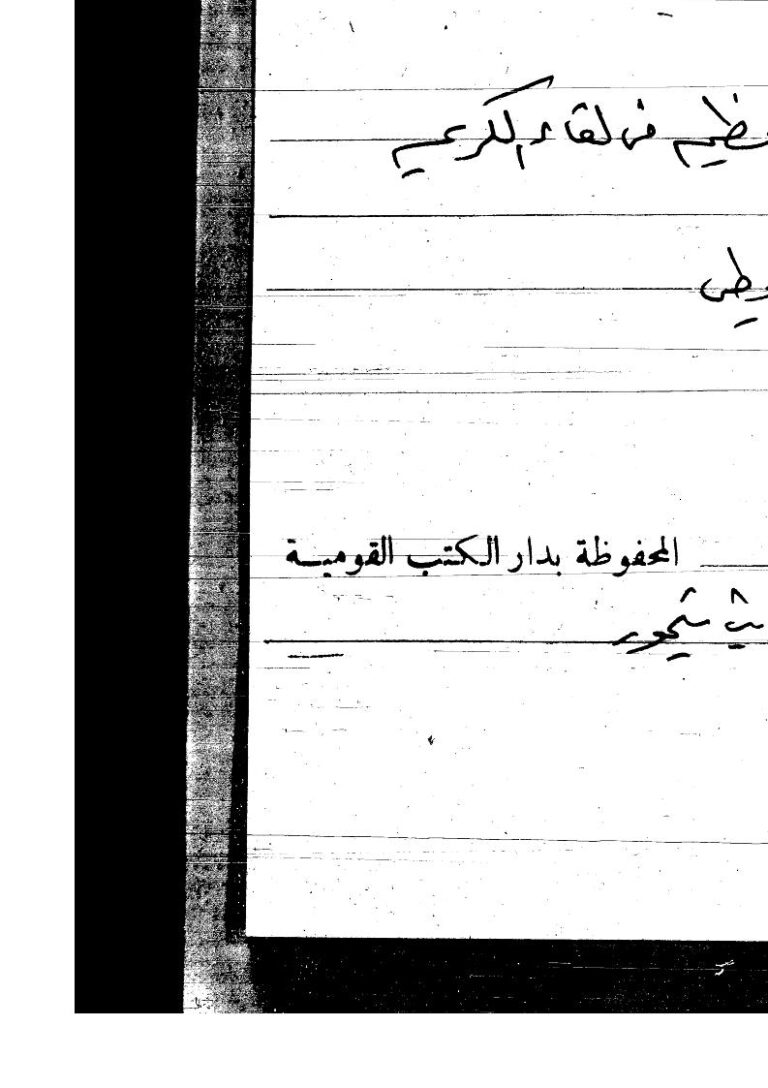 ظيم فى لقاء الكريم
وطى
المحفوظة بدار الكتب القومية
يث تيمور